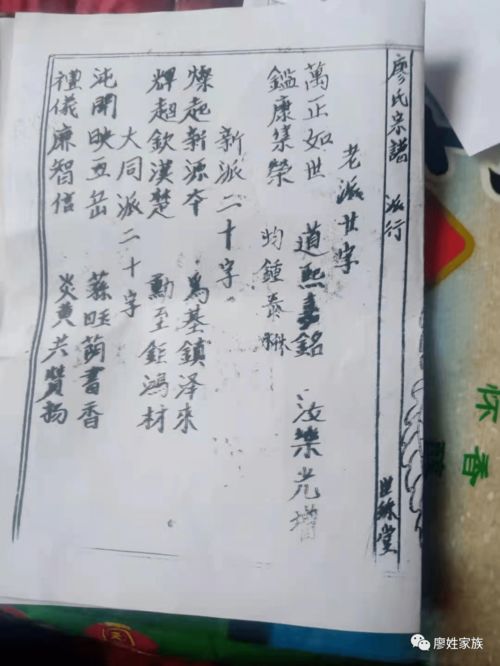 廖氏宗譜 派行 世綵堂
老派廿字
萬正如世 道熙嘉銘 汝樂光增
鑑康集榮 均鍾泰
新派二十字
燦起新源本 為基鎮泽來
輝超欽漢楚 勳至鉅鴻材
大同派二十字
沌開映五岳 蘇旺蔚書香
禮儀廉智信 炎黃共贊揚
怀
香
廖姓家族